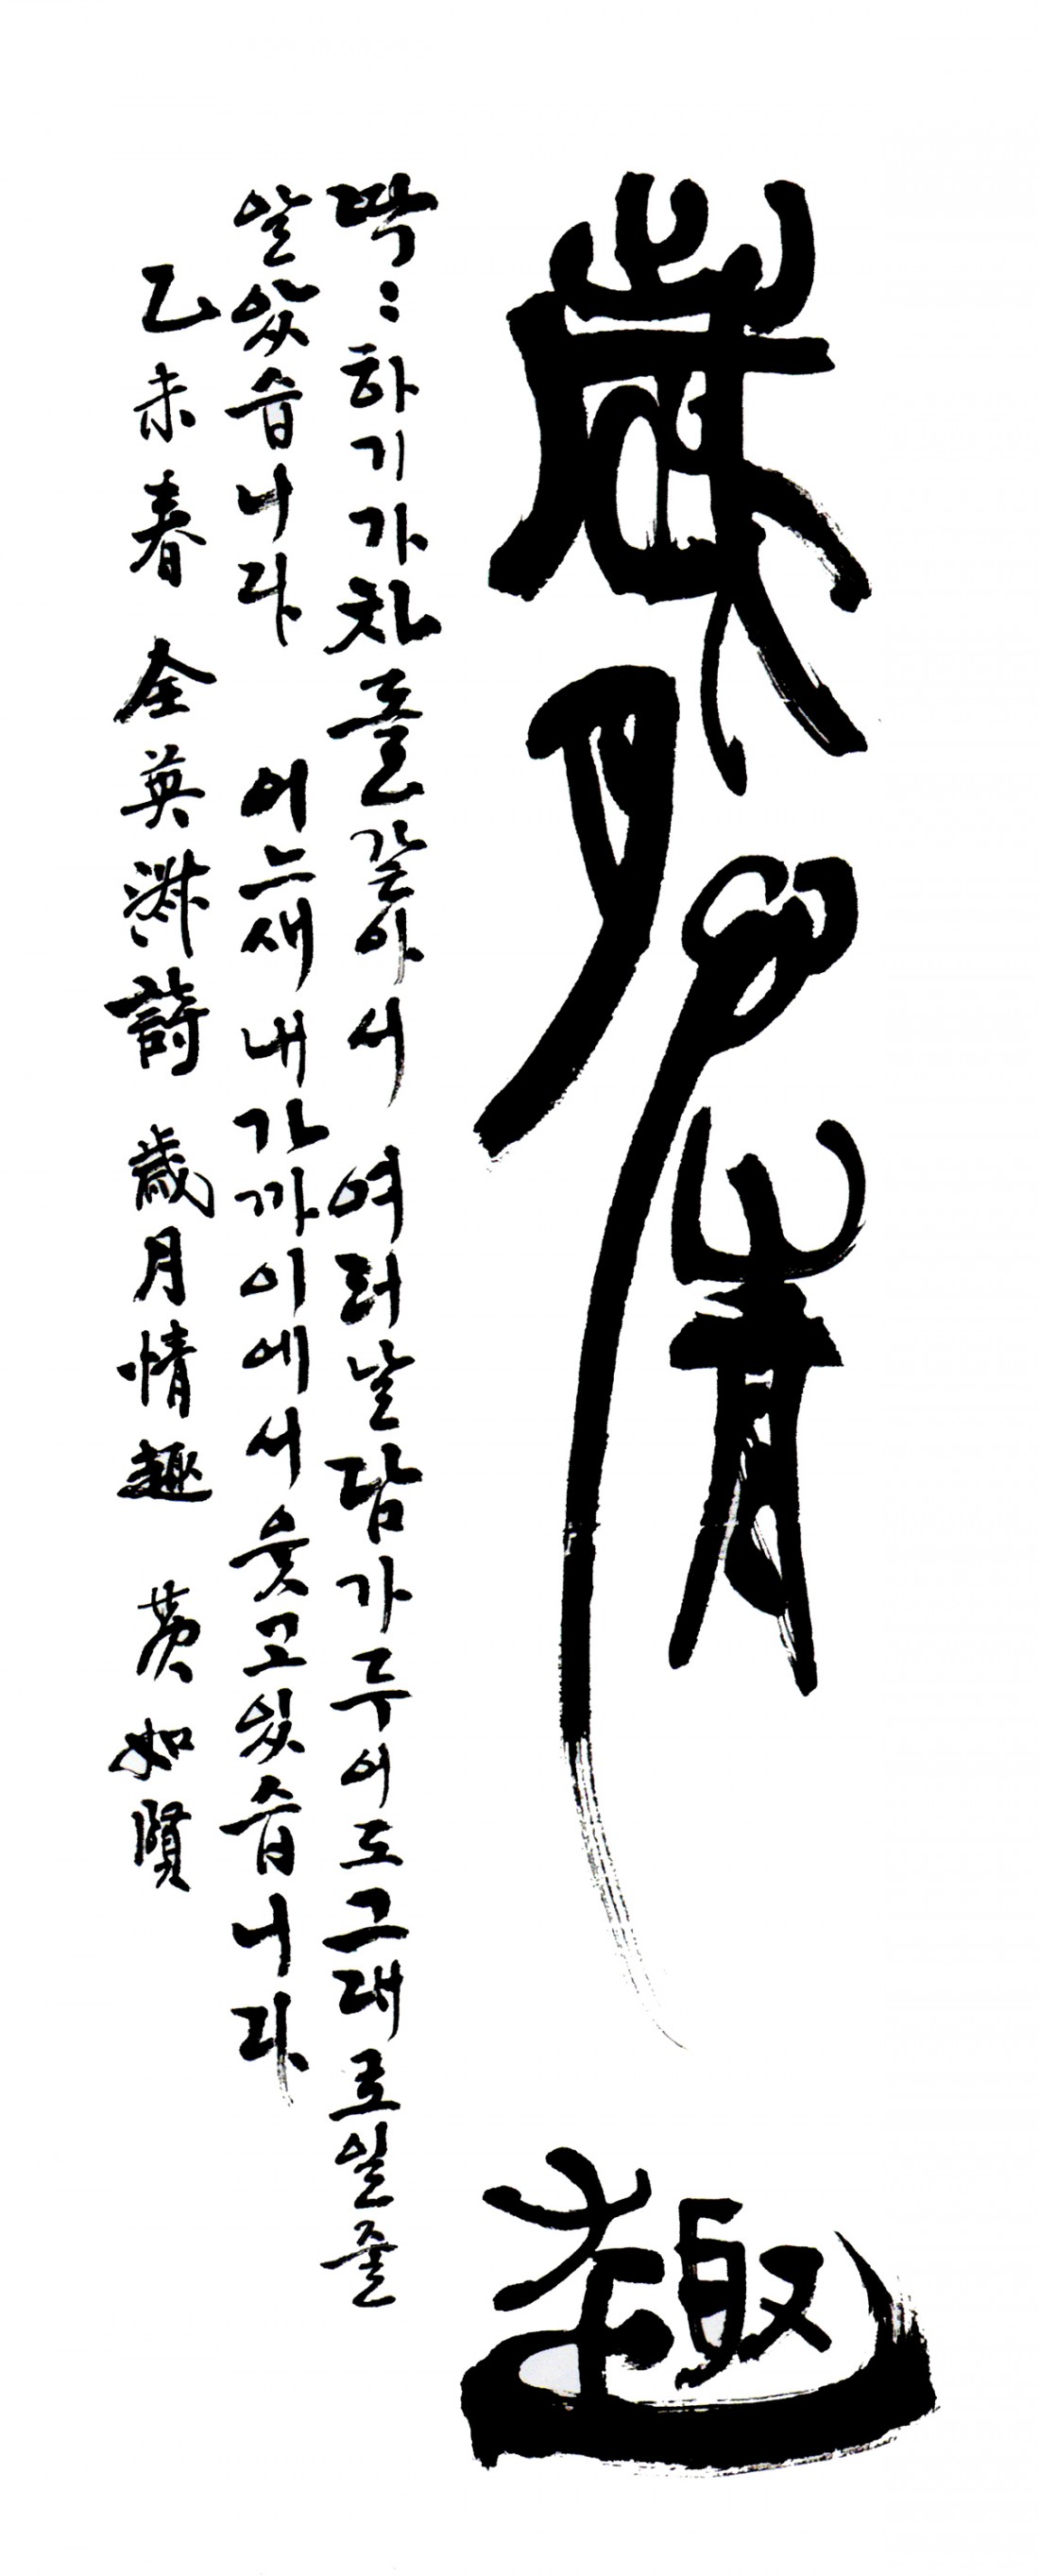 歲月情趣
딱:하기가차돌같아서 여러날담가두어도그대로일줄
알았습니다 어느새내가까이에서웃고있습니다
乙未春 全英 詩 歲月情趣 黃如賢